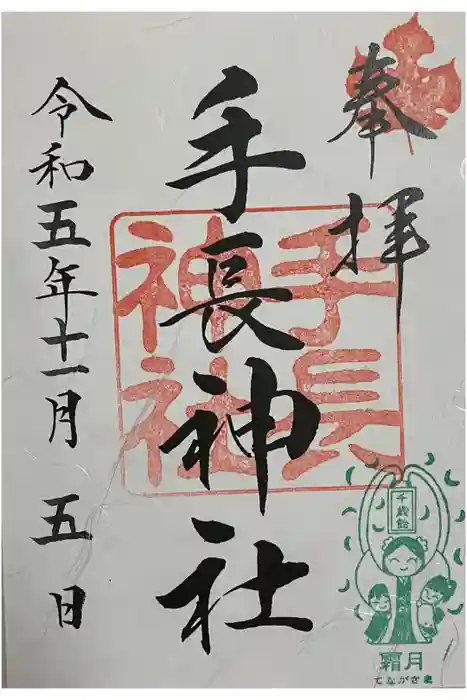 奉拝
手長神社
手長
神社
令和五年十一月五日
千歳飴
霜月
てながさま